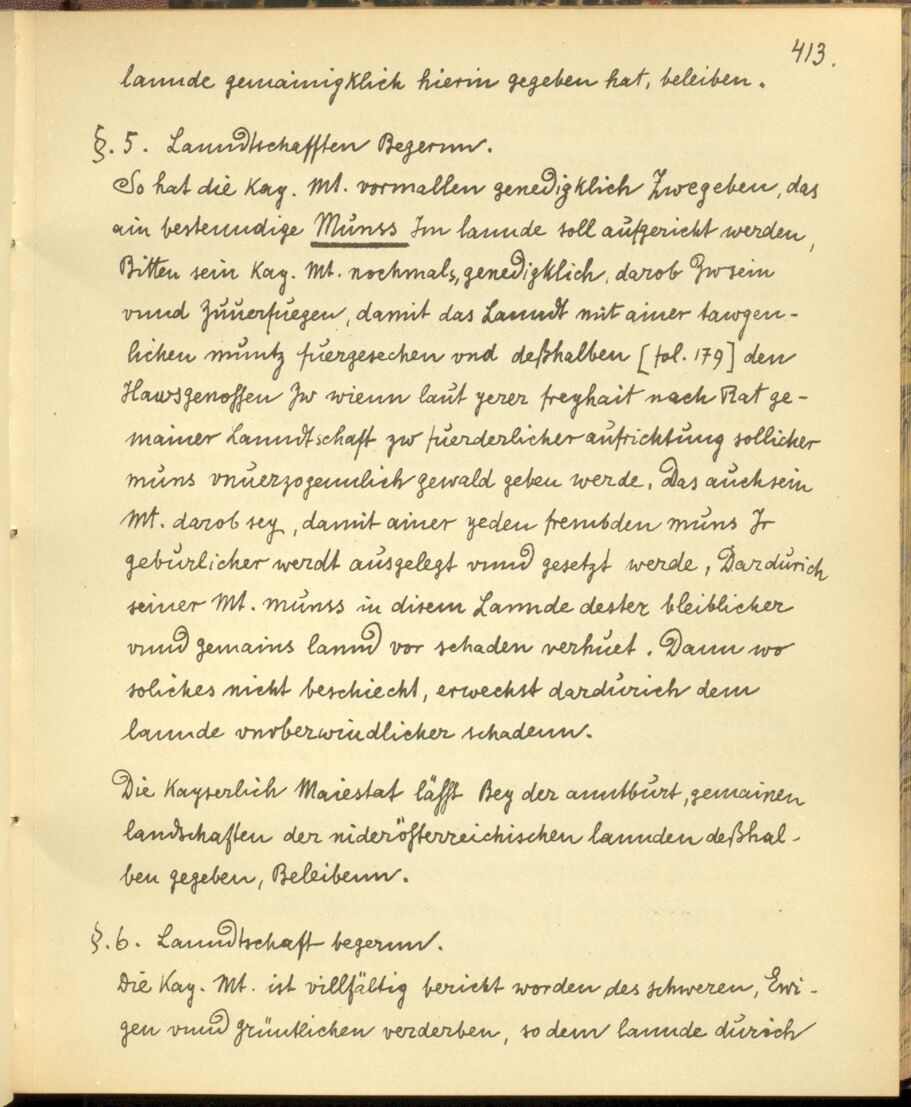 413.
lannde gemainigklich hierin gegeben hat, beleiben.
§. 5. Lanndtschafften Begernn.
So hat die Kay. Mt. vormallen genedigklich Zwegeben, das
ain bestenndige Munss Im lannde soll aufgericht werden,
Bitten sein Kay. Mt. nochmals, genedigklich, darob Zwsein
vnnd Zuuerfuegen, damit das Lanndt mit ainer tawgen-
lichen muntz fuergesechen vnd deßhalben [fol. 179] den
Hawsgenossen Zw wienn laut yerer freyhait nach Rat ge-
mainer Lanndtschaft zw fuerderlicher aufrichtung sollicher
muns vnuerzogennlich gewald geben werde, Das auch sein
Mt. darob sey, damit ainer yeden frembden muns Ir
geburlicher werdt ausgelegt vnnd gesetzt werde, Dardurich
seiner Mt. munss in disem Lannde dester bleiblicher
vnnd gemains lannd vor schaden verhuet. Dann wo
soliches nicht beschiecht, erwechst dardurich dem
lannde vnoberwindlicher schadenn.
Die Kayserlich Maiestat lässt Bey der anntburt, gemainen
landschaften der niderösterreichischen lannden deßhal-
ben gegeben, Beleibenn.
§. 6. Lanndtschaft begernn.
Die Kay. Mt. ist villfältig bericht worden des schweren, Ewi-
gen vnnd grüntlichen verderben, so dem lannde durich